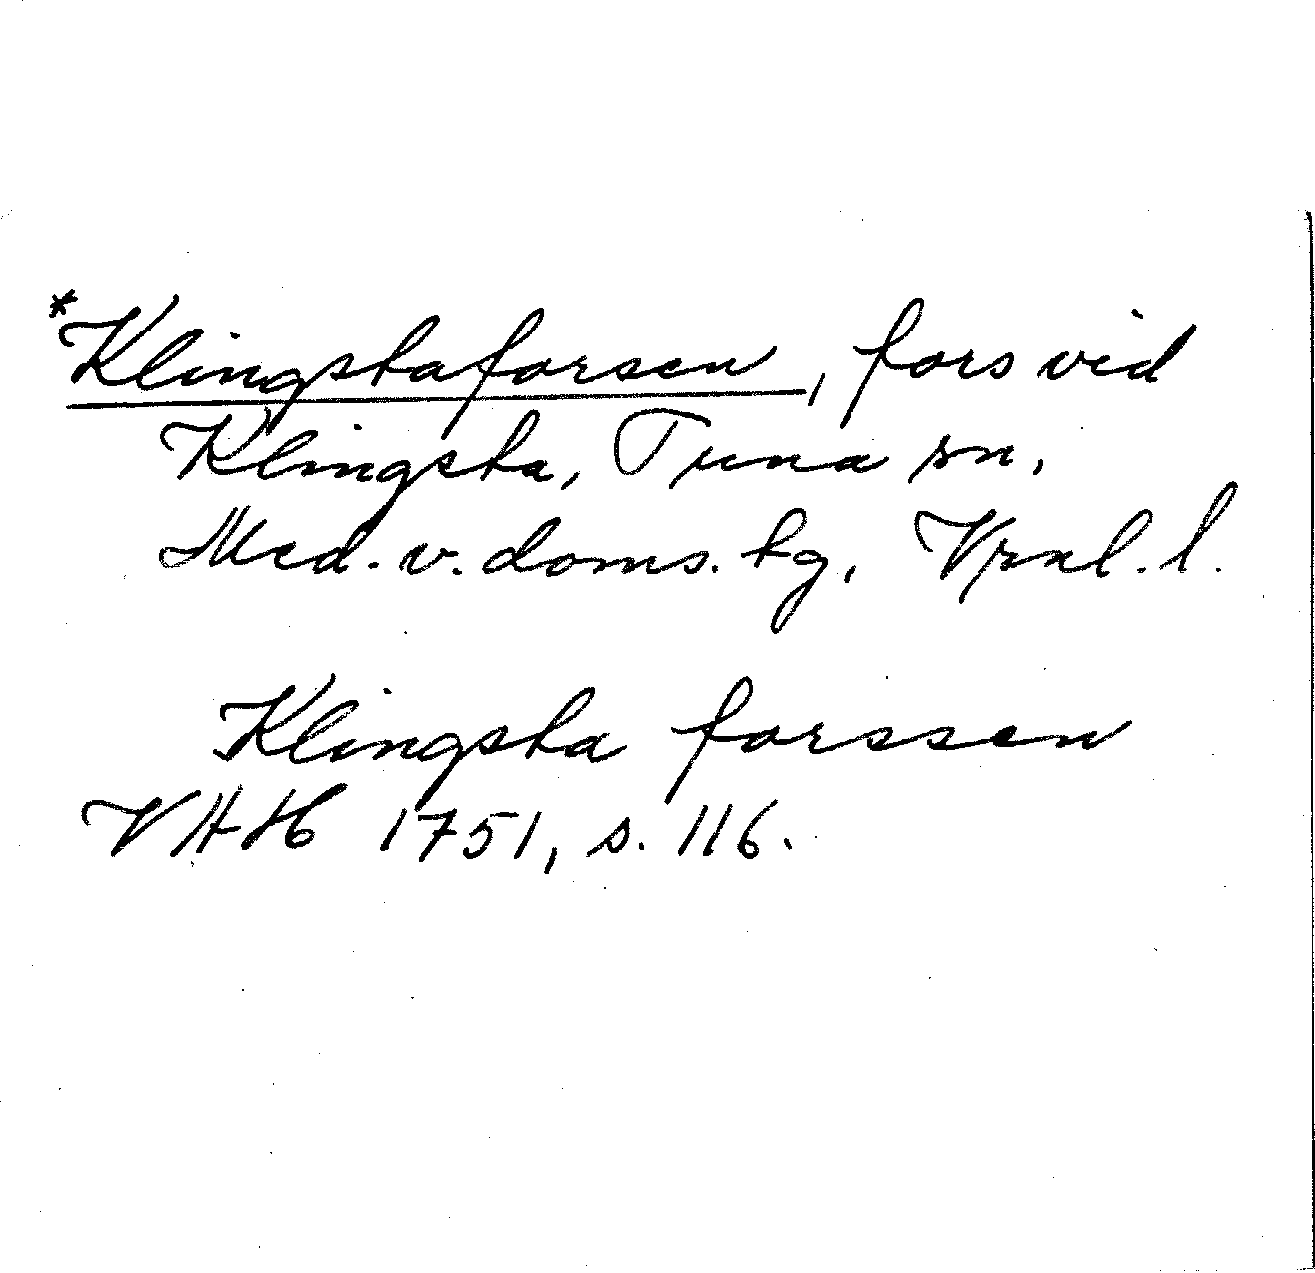 *Klingstaforsen, fors vid
Klingsta, Tuna sn,
Med. v. doms. tg, Vrnl. l.
Klingsta forssen
VHH 1751, s. 116.